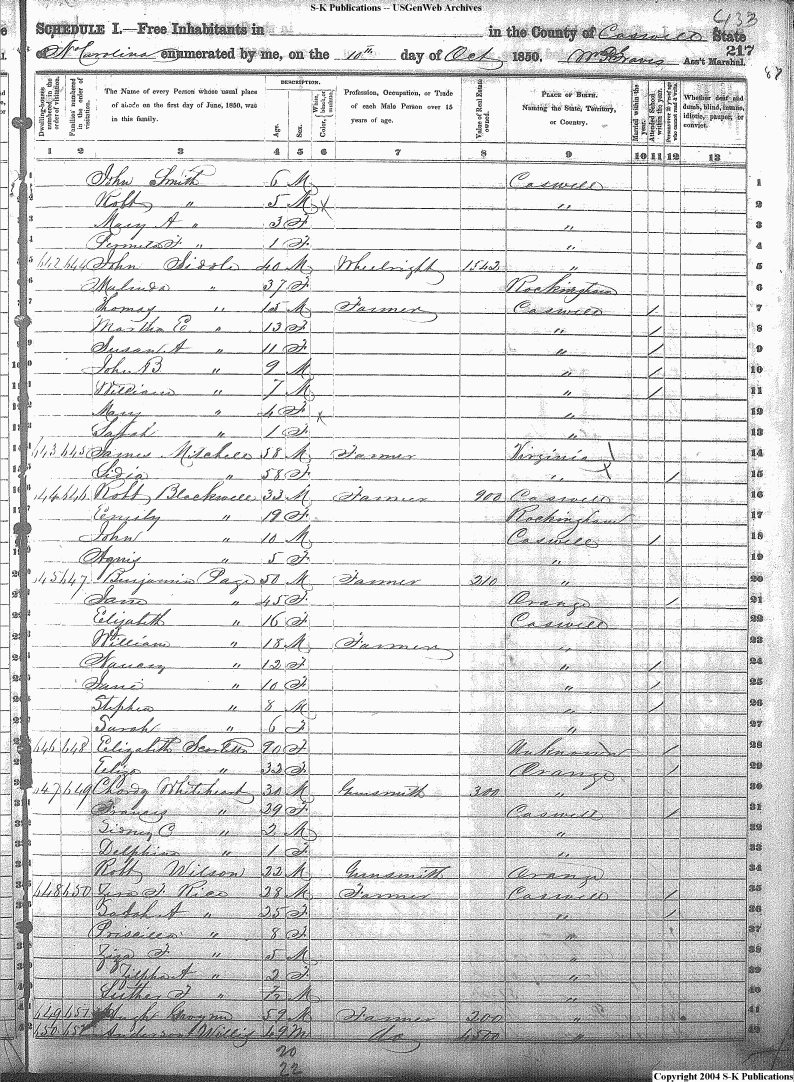 S-K Publications -- USGenWeb Archives
433
SCHEDULE I.—Free Inhabitants in in the County of Caswell State
of N. Carolina enumerated by me, on the 10th day of Oct 1850. Ass't Marshal. 217
Dwelling-houses numbered in the order of visitation.
Families numbered in the order of visitation.
The Name of every Person whose usual place of abode on the first day of June, 1850, was in this family.
DESCRIPTION.
Age.
Sex.
Color, White, black, or mulatto.
Profession, Occupation, or Trade of each Male Person over 15 years of age.
Value of Real Estate owned.
PLACE OF BIRTH. Naming the State, Territory, or Country.
Married within the year.
Attended School within the year.
Persons over 20 y'rs of age who cannot read & write.
Whether deaf and dumb, blind, insane, idiotic, pauper, or convict.
1 2 3 4 5 6 7 8 9 10 11 12 13
John Smith 6 M Caswell 1
Robt " 5 M x " 2
Mary A " 3 F " 3
F " 1 F " 4
642 644 John Siddle 40 M Wheelright 1542 " 5
Malinda " 37 F Rockingham 6
Thomas " 15 M Farmer Caswell / 7
Martha E " 13 F " / 8
Susan A " 11 F " / 9
John B " 9 M " / 10
William " 7 M " / 11
Mary " 4 F x " 12
Sarah " 1 F " 13
643 645 James Mitchell 58 M Farmer Virginia 14
" 58 F " / 15
644 646 Robt Blackwell 33 M Farmer 900 Caswell 16
Emily " 19 F Rockingham 17
John " 10 M Caswell / 18
Agnis " 5 F " 19
645 647 Benjamin Page 50 M Farmer 210 " 20
Jane " 45 F Orange / 21
Elizabeth " 16 F Caswell 22
William " 18 M Farmer " 23
Nancy " 12 F " / 24
Jane " 10 F " / 25
Stephen " 8 M " / 26
Sarah " 6 F " 27
646 648 Elizabeth 90 F Unknown / 28
Eliza " 33 F Orange / 29
647 649 Whiteheart 30 M Gunsmith 300 " 30
Frances " 29 F Caswell / 31
Sidney C " 2 M " 32
Delphina " 1 F " 33
Robt Wilson 22 M Gunsmith Orange 34
648 650 F. Rice 28 M Farmer Caswell / 35
A " 25 F " / 36
Priscilla " 8 F " 37
F " 5 M " 38
Zilpha A " 2 F " 39
Luther F " M " 40
649 651 Gwynn 59 M Farmer 200 " 41
650 652 Anderson Willis 49 M do 4500 " 42
20
22
Copyright 2004 S-K Publications